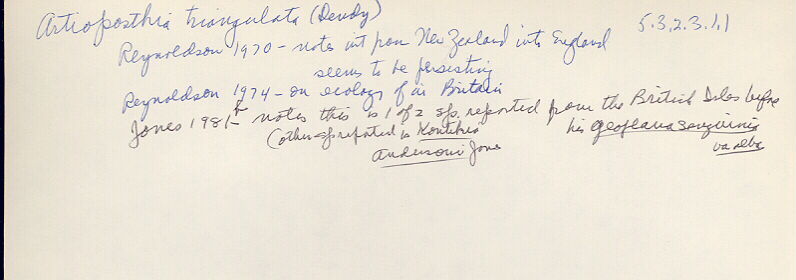 Artioposthia triangulata (Dendy) 5.3.2.3.1.1
Reynoldson 1970 - notes int from New Zealand into England
seems to be persisting
Reynoldson 1974 - on ecology of in Britain
Jones 1981 notes this is 1 of 2 sp. reported from the British Isles before
(other sp reported is Kontikia his Geoplana sanguinia
andersoni Jones va alba